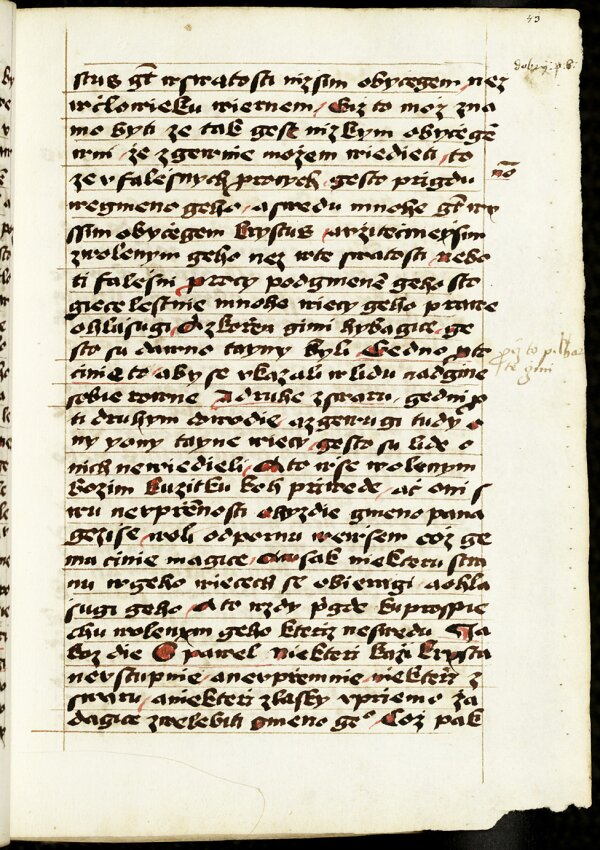 43
stus gt w swatosti nizsim obyczegem nez
w czlowieku wiernem, Ez to moz zna
mo byti ze tak gest nizkym obyczege
ze zgewnie mozem wiedieti, to
ze v falesnych prorych gesto prigdu
we gmeno geho, a swedu mnohe gt
ssim obyczegem krystus
zwolenym geho nez w te swatosti nebo
ti falesni procy podgmene geho sto
giece lestnie mnohe wiecy geho prawe
ohlasugi, a z koren gimi hybagice, ge
sto su dawno tayny byli Gedno, pto
cinie to, aby se vkazali w lidu nadgine
sobie rowne A druhe z swaru gedni p
ti druhym dowodie azgewugi tudy o
ny pony tayne wiecy gesto su lide o
nich newiedieli, A to wse wolenym
bozim kuzitku boh priwede, ac oni s
wu nevprenosti ohyzdie gmeno pana
gezise, woli odpornu we wsem coz ge
ma cinie magice, awsak niekteru stra
nu w geho wiecech se obieragi, a ohla
sugi geho A to wzdy pgde k prospie
chu wolenym geho kteriz neswedu Ja
koz die S pawel niekteri kazi krysta
nevstupnie, a nevpremnie, niekteri z
swaru, a niekteri z lasky vpriemo za
dagice zwelebiti gmeno ge° Coz pak